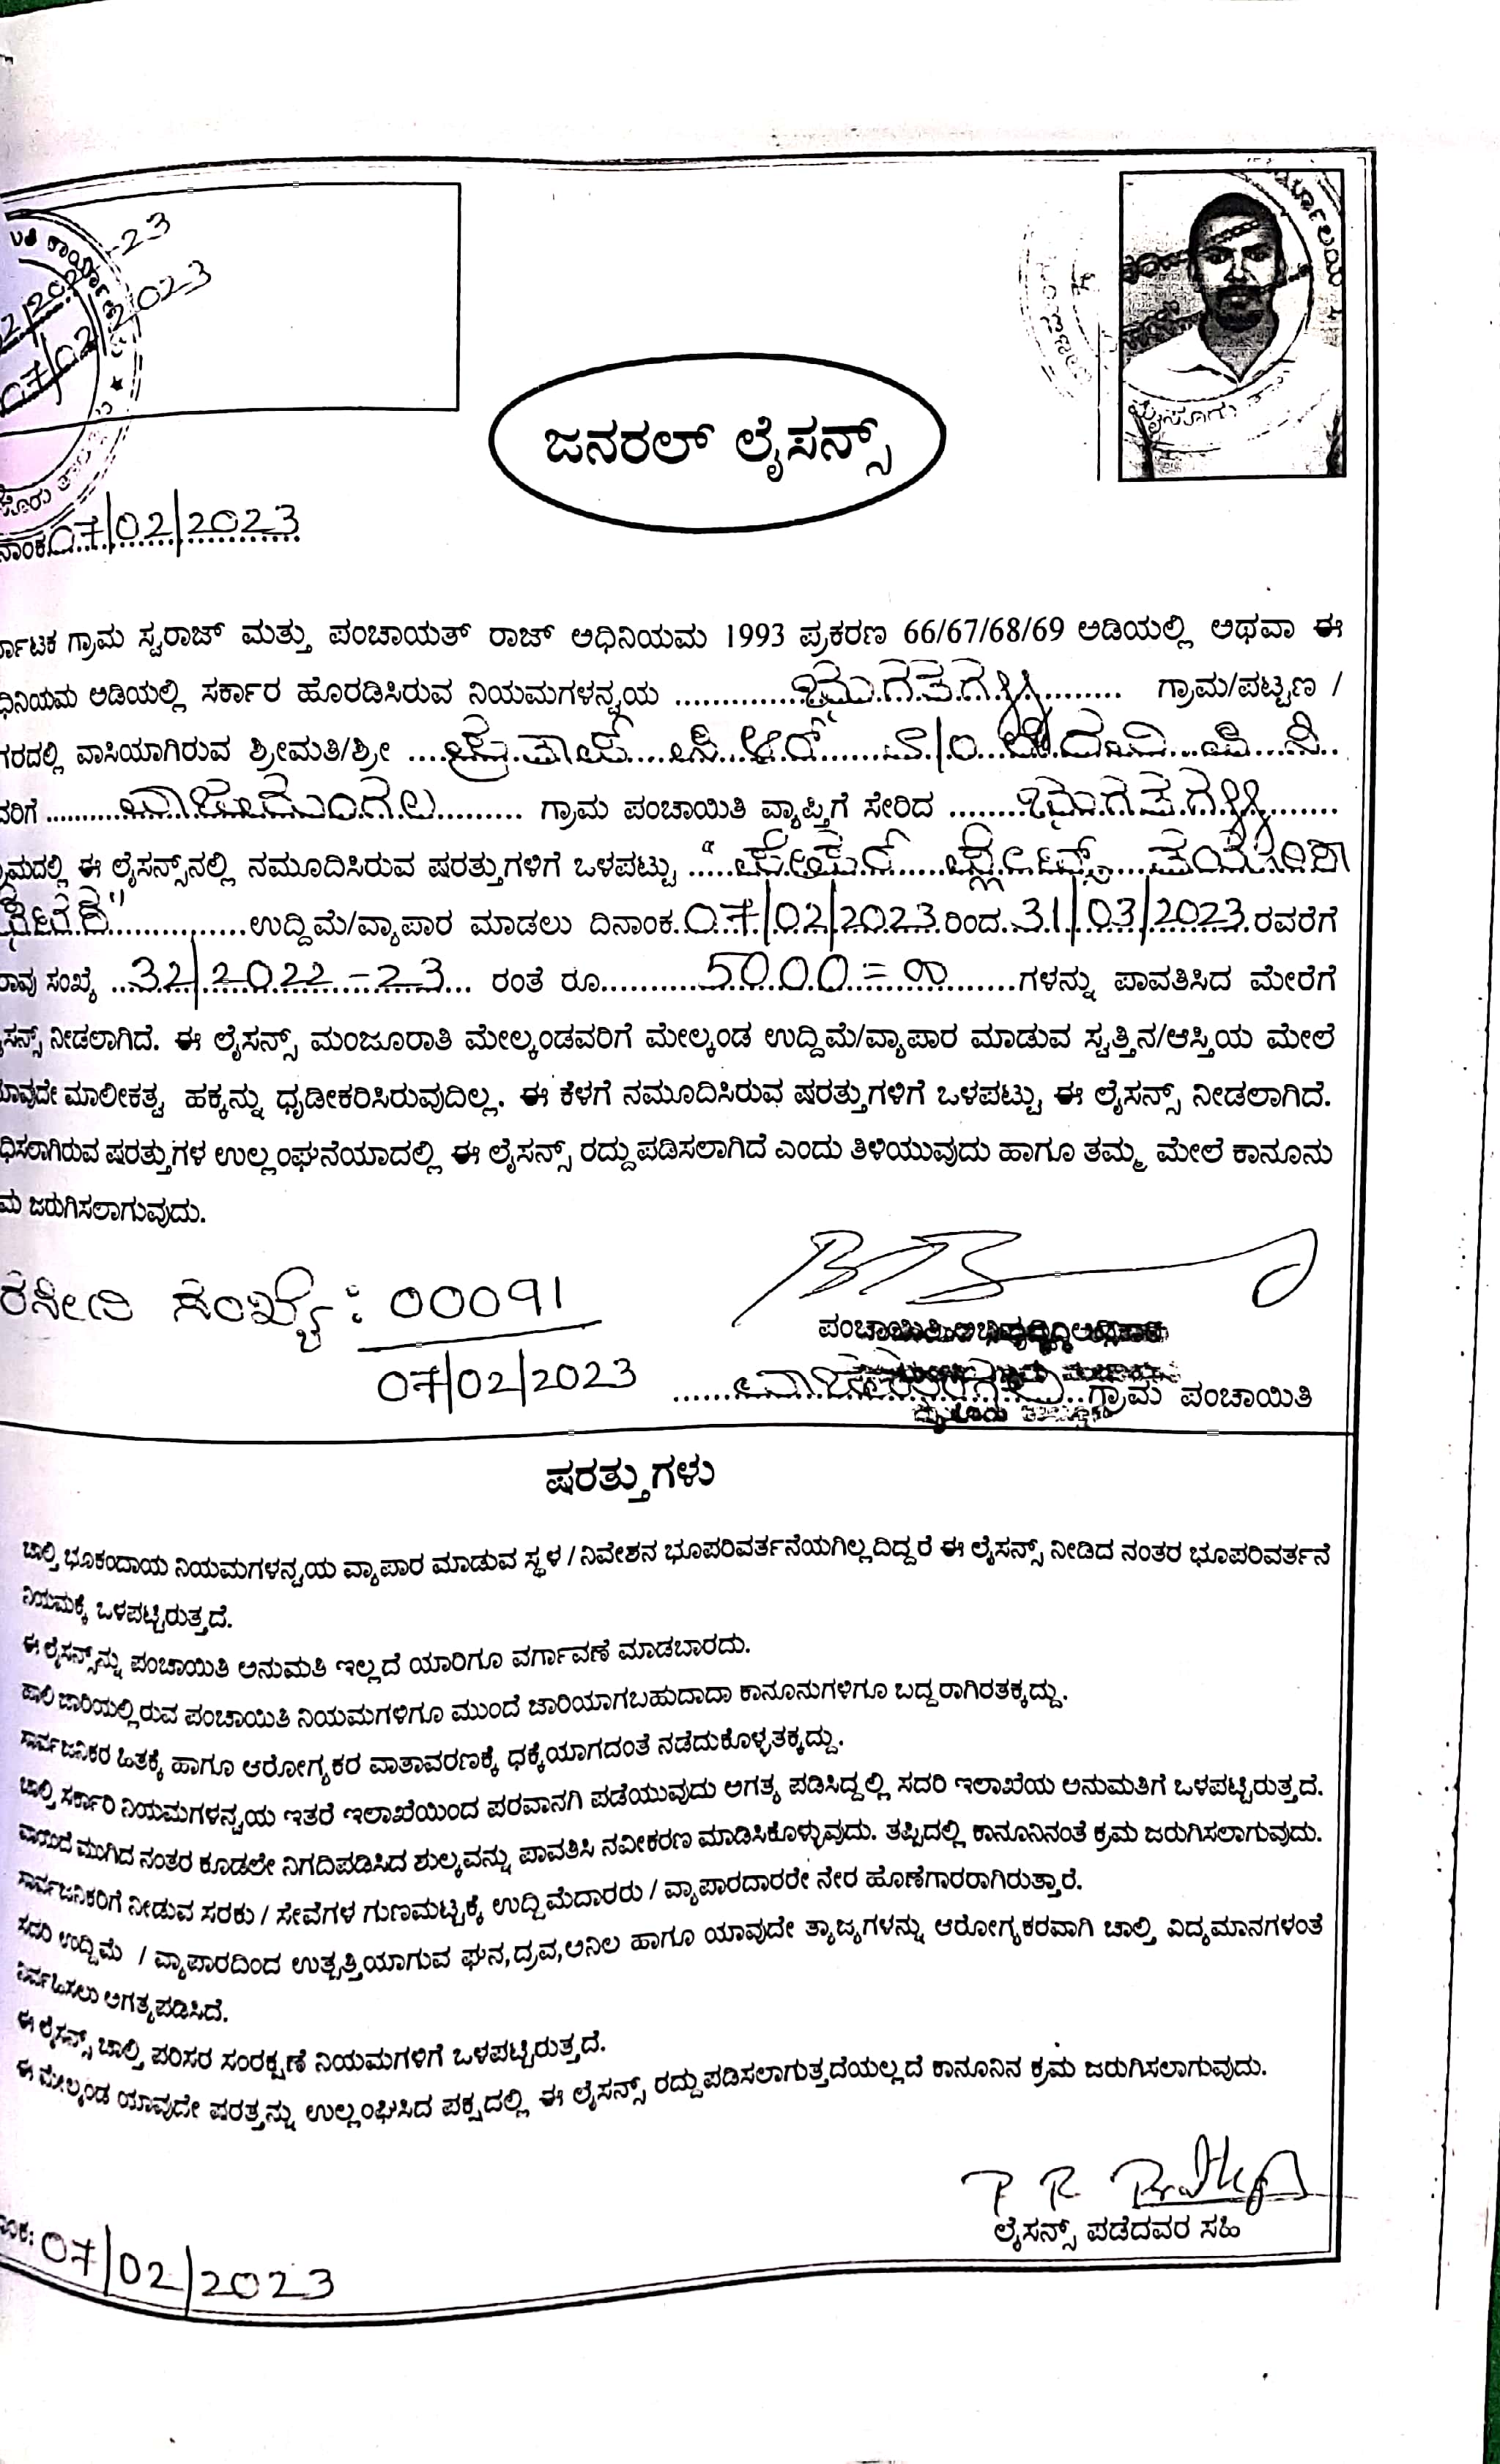 -23
07/02/2023
ಜನರಲ್ ಲೈಸನ್ಸ್
ನಾಂಕ 07/02/2023
ರ್ನಾಟಕ ಗ್ರಾಮ ಸ್ವರಾಜ್ ಮತ್ತು ಪಂಚಾಯತ್ ರಾಜ್ ಅಧಿನಿಯಮ 1993 ಪ್ರಕರಣ 66/67/68/69 ಅಡಿಯಲ್ಲಿ ಅಥವಾ ಈ
ಧಿನಿಯಮ ಅಡಿಯಲ್ಲಿ ಸರ್ಕಾರ ಹೊರಡಿಸಿರುವ ನಿಯಮಗಳನ್ವಯ ಭುಗತಗಳ್ಳಿ ಗ್ರಾಮ/ಪಟ್ಟಣ /
ಗರದಲ್ಲಿ ವಾಸಿಯಾಗಿರುವ ಶ್ರೀಮತಿ/ಶ್ರೀ ಪ್ರತಾಪ್ ಪಿ.ಆರ್
ವರಿಗೆ ವಾಜಮಂಗಲ ಗ್ರಾಮ ಪಂಚಾಯಿತಿ ವ್ಯಾಪ್ತಿಗೆ ಸೇರಿದ ಭುಗತಗಳ್ಳಿ
್ರಾಮದಲ್ಲಿ ಈ ಲೈಸನ್ಸ್‌ನಲ್ಲಿ ನಮೂದಿಸಿರುವ ಷರತ್ತುಗಳಿಗೆ ಒಳಪಟ್ಟು ತಯಾರಿಕಾ
ಉದ್ದಿಮೆ/ವ್ಯಾಪಾರ ಮಾಡಲು ದಿನಾಂಕ 07/02/2023 ರಿಂದ 31/03/2023 ರವರೆಗೆ
ರಾವು ಸಂಖ್ಯೆ 32/2022-23 ರಂತೆ ರೂ 5000=00 ಗಳನ್ನು ಪಾವತಿಸಿದ ಮೇರೆಗೆ
ೈಸನ್ಸ್ ನೀಡಲಾಗಿದೆ. ಈ ಲೈಸನ್ಸ್ ಮಂಜೂರಾತಿ ಮೇಲ್ಕಂಡವರಿಗೆ ಮೇಲ್ಕಂಡ ಉದ್ದಿಮೆ/ವ್ಯಾಪಾರ ಮಾಡುವ ಸ್ವತ್ತಿನ/ಆಸ್ತಿಯ ಮೇಲೆ
ಯಾವುದೇ ಮಾಲೀಕತ್ವ ಹಕ್ಕನ್ನು ಧೃಡೀಕರಿಸಿರುವುದಿಲ್ಲ. ಈ ಕೆಳಗೆ ನಮೂದಿಸಿರುವ ಷರತ್ತುಗಳಿಗೆ ಒಳಪಟ್ಟು ಈ ಲೈಸನ್ಸ್ ನೀಡಲಾಗಿದೆ.
ಧಿಸಲಾಗಿರುವ ಷರತ್ತುಗಳ ಉಲ್ಲಂಘನೆಯಾದಲ್ಲಿ ಈ ಲೈಸನ್ಸ್ ರದ್ದುಪಡಿಸಲಾಗಿದೆ ಎಂದು ತಿಳಿಯುವುದು ಹಾಗೂ ತಮ್ಮ ಮೇಲೆ ಕಾನೂನು
ಮ ಜರುಗಿಸಲಾಗುವುದು.
ರಸೀದಿ ಸಂಖ್ಯೆ: 00091
07/02/2023
ಪಂಚಾಯಿತಿ ಅಭಿವೃದ್ಧಿ ಅಧಿಕಾರಿ
ವಾಜಮಂಗಲ ಗ್ರಾಮ ಪಂಚಾಯಿತಿ
ಷರತ್ತುಗಳು
ಚಾಲ್ತಿ ಭೂಕಂದಾಯ ನಿಯಮಗಳನ್ವಯ ವ್ಯಾಪಾರ ಮಾಡುವ ಸ್ಥಳ / ನಿವೇಶನ ಭೂಪರಿವರ್ತನೆಯಗಿಲ್ಲದಿದ್ದರೆ ಈ ಲೈಸನ್ಸ್ ನೀಡಿದ ನಂತರ ಭೂಪರಿವರ್ತನೆ
ನಿಯಮಕ್ಕೆ ಒಳಪಟ್ಟಿರುತ್ತದೆ.
ಈ ಲೈಸನ್ಸ್‌ನ್ನು ಪಂಚಾಯಿತಿ ಅನುಮತಿ ಇಲ್ಲದೆ ಯಾರಿಗೂ ವರ್ಗಾವಣೆ ಮಾಡಬಾರದು.
ಹಾಲಿ ಜಾರಿಯಲ್ಲಿರುವ ಪಂಚಾಯಿತಿ ನಿಯಮಗಳಿಗೂ ಮುಂದೆ ಜಾರಿಯಾಗಬಹುದಾದಾ ಕಾನೂನುಗಳಿಗೂ ಬದ್ದರಾಗಿರತಕ್ಕದ್ದು.
ಸಾರ್ವಜನಿಕರ ಹಿತಕ್ಕೆ ಹಾಗೂ ಆರೋಗ್ಯಕರ ವಾತಾವರಣಕ್ಕೆ ಧಕ್ಕೆಯಾಗದಂತೆ ನಡೆದುಕೊಳ್ಳತಕ್ಕದ್ದು.
ಚಾಲ್ತಿ ಸರ್ಕಾರಿ ನಿಯಮಗಳನ್ವಯ ಇತರೆ ಇಲಾಖೆಯಿಂದ ಪರವಾನಗಿ ಪಡೆಯುವುದು ಅಗತ್ಯ ಪಡಿಸಿದ್ದಲ್ಲಿ ಸದರಿ ಇಲಾಖೆಯ ಅನುಮತಿಗೆ ಒಳಪಟ್ಟಿರುತ್ತದೆ.
ವಾಯಿದೆ ಮುಗಿದ ನಂತರ ಕೂಡಲೇ ನಿಗದಿಪಡಿಸಿದ ಶುಲ್ಕವನ್ನು ಪಾವತಿಸಿ ನವೀಕರಣ ಮಾಡಿಸಿಕೊಳ್ಳುವುದು. ತಪ್ಪಿದಲ್ಲಿ ಕಾನೂನಿನಂತೆ ಕ್ರಮ ಜರುಗಿಸಲಾಗುವುದು.
ಸಾರ್ವಜನಿಕರಿಗೆ ನೀಡುವ ಸರಕು / ಸೇವೆಗಳ ಗುಣಮಟ್ಟಕ್ಕೆ ಉದ್ದಿಮೆದಾರರು / ವ್ಯಾಪಾರದಾರರೇ ನೇರ ಹೊಣೆಗಾರರಾಗಿರುತ್ತಾರೆ.
ಸದರಿ ಉದ್ದಿಮೆ / ವ್ಯಾಪಾರದಿಂದ ಉತ್ಪತ್ತಿಯಾಗುವ ಘನ,ದ್ರವ,ಅನಿಲ ಹಾಗೂ ಯಾವುದೇ ತ್ಯಾಜ್ಯಗಳನ್ನು ಆರೋಗ್ಯಕರವಾಗಿ ಚಾಲ್ತಿ ವಿದ್ಯಮಾನಗಳಂತೆ
ನಿರ್ವಹಿಸಲು ಅಗತ್ಯಪಡಿಸಿದೆ.
ಈ ಲೈಸನ್ಸ್ ಚಾಲ್ತಿ ಪರಿಸರ ಸಂರಕ್ಷಣೆ ನಿಯಮಗಳಿಗೆ ಒಳಪಟ್ಟಿರುತ್ತದೆ.
ಈ ಮೇಲ್ಕಂಡ ಯಾವುದೇ ಷರತ್ತನ್ನು ಉಲ್ಲಂಘಿಸಿದ ಪಕ್ಷದಲ್ಲಿ ಈ ಲೈಸನ್ಸ್ ರದ್ದುಪಡಿಸಲಾಗುತ್ತದೆಯಲ್ಲದೆ ಕಾನೂನಿನ ಕ್ರಮ ಜರುಗಿಸಲಾಗುವುದು.
P R
ಲೈಸನ್ಸ್ ಪಡೆದವರ ಸಹಿ
ಾಂಕ: 07/02/2023